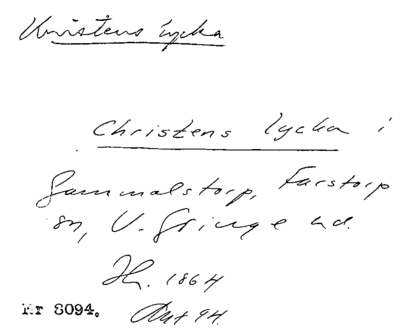 Kristens lycka
Christens lycka i
Gammalstorp, Farstorp
sn, V. Göinge hd.
Jh. 1864
Nr 8094. Ant 94.